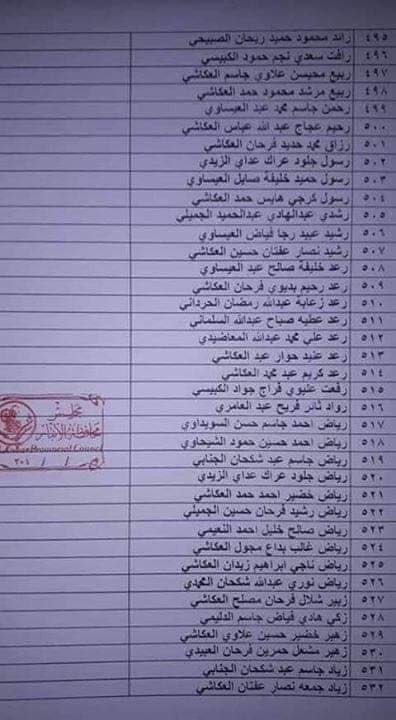 ٤٩٥ رائد محمود حميد ريحان الصبيحي
٤٩٦ رافت سعدي نجم حمود الكبيسي
٤٩٧ ربيع محيسن علاوي جاسم العكاشي
٤٩٨ ربيع مرشد محمود حمد العكاشي
٤٩٩ رحمن جاسم محمد عبد العيساوي
٥٠٠ رحيم عجاج عبد الله عباس العكاشي
٥٠١ رزاق محمد حديد فرحان العكاشي
٥٠٢ رسول جلود عراك عداي الزيدي
٥٠٣ رسول حميد خليفة صايل العيساوي
٥٠٤ رسول كرجي هايس حمد العكاشي
٥٠٥ رشدي عبدالهادي عبدالحميد الجميلي
٥٠٦ رشيد عبيد رجا فياض العيساوي
٥٠٧ رشيد نصار عفتان حسين العكاشي
٥٠٨ رعد خليفة صالح عبد العيساوي
٥٠٩ رعد رحيم بديوي فرحان العكاشي
٥١٠ رعد زعابة عبدالله رمضان الحرداني
٥١١ رعد عطيه صباح عبدالله السلماني
٥١٢ رعد علي محمد عبدالله المعاضيدي
٥١٣ رعد عنيد حوار عبد العكاشي
٥١٤ رعد كريم عبد محمد العكاشي
٥١٥ رفعت عليوي فراج جواد الكبيسي
٥١٦ رواد ثائر فريح عبد العامري
٥١٧ رياض احمد جاسم حسن السويداوي
٥١٨ رياض احمد حسين حمود الشيحاوي
٥١٩ رياض جاسم عبد شكحان الجنابي
٥٢٠ رياض جلود عراك عداي الزيدي
٥٢١ رياض خضير احمد حمد العكاشي
٥٢٢ رياض رشيد فرحان حسين الجميلي
٥٢٣ رياض صالح خليل احمد النعيمي
٥٢٤ رياض غالب بداع مجول العكاشي
٥٢٥ رياض ناجي ابراهيم زيدان العكاشي
٥٢٦ رياض نوري عبدالله شكحان المحمدي
٥٢٧ زبير شلال فرحان مصلح العكاشي
٥٢٨ زكي هادي فياض جاسم الدليمي
٥٢٩ زهير خضير حسين علاوي العكاشي
٥٣٠ زهير مشعل حمرين فرحان العبيدي
٥٣١ زياد جاسم عبد شكحان الجنابي
٥٣٢ زياد جمعه نصار عفتان العكاشي
مجلس
محافظة الانبار
Anbar Provincial Council